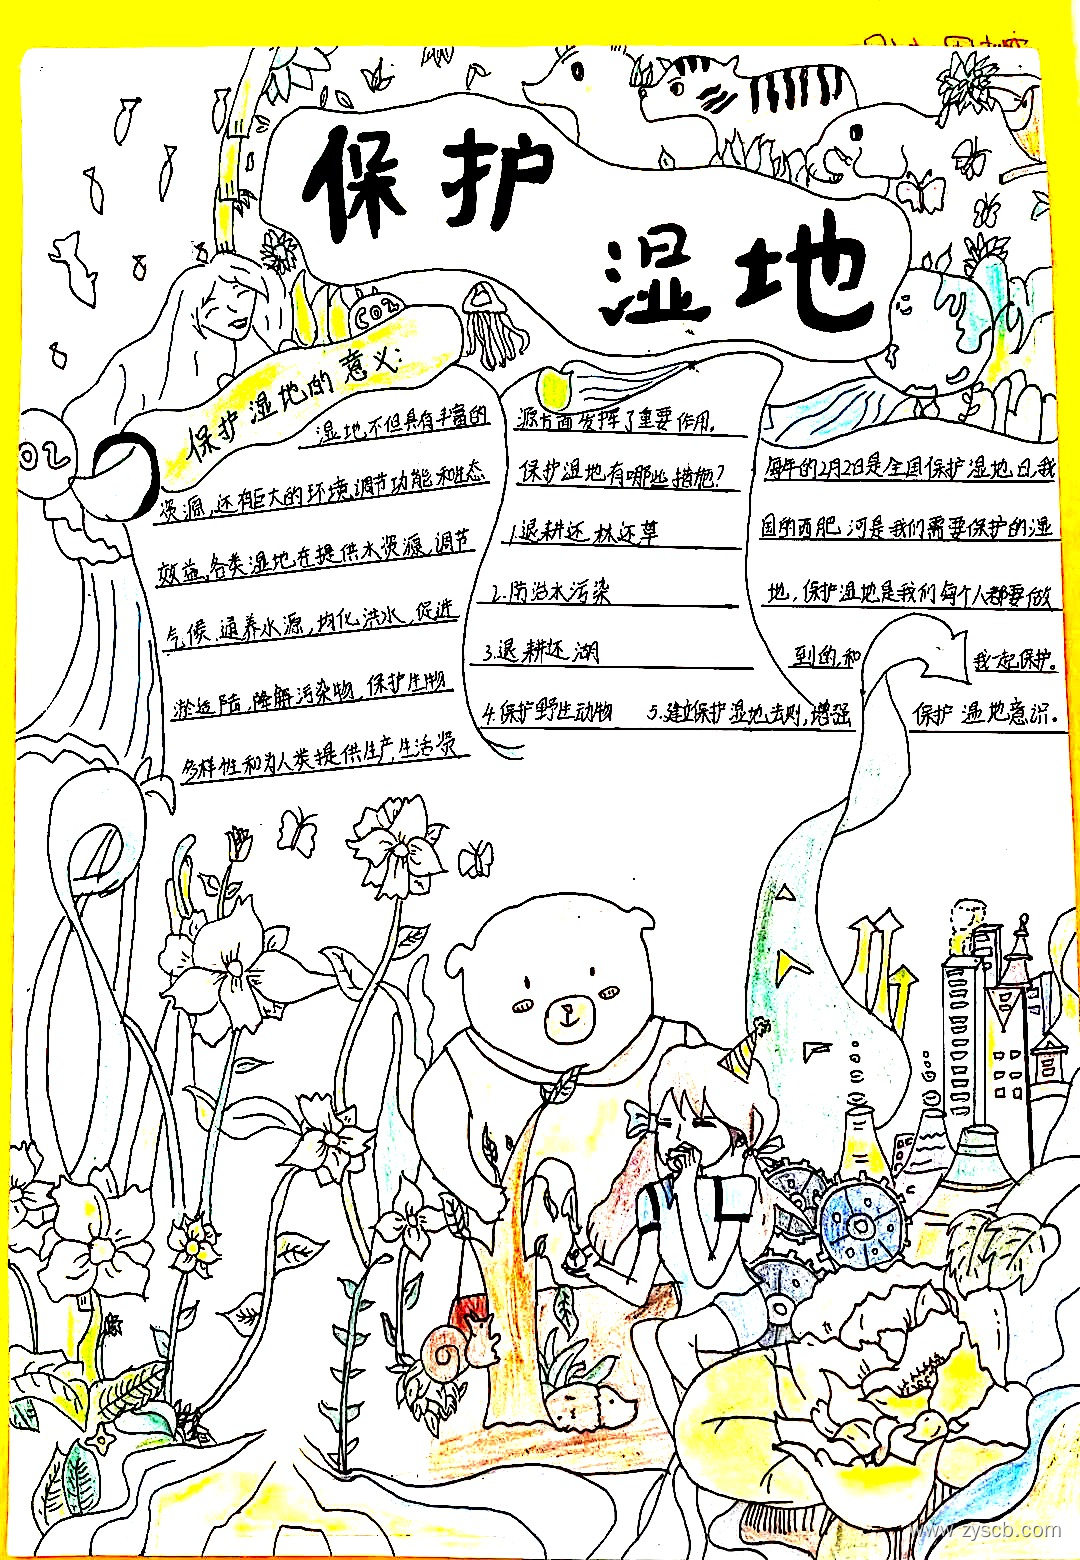 保护
湿地
CO2
O2
保护湿地的意义:
湿地,不但具有丰富的
资源,还有巨大的环境调节功能和生态
效益,各类湿地在提供水资源,调节
气候,涵养水源,均化洪水,促进
淤造陆,降解污染物,保护生物
多样性和为人类提供生产,生活资
源方面发挥了重要作用。
保护湿地有哪些措施?
1.退耕还林还草
2.防治水污染
3.退耕还湖
4.保护野生动物 5.建立保护湿地法则,增强
保护湿地意识。
每年的2月2日是全国保护湿地日,我
国的西肥河是我们需要保护的湿
地,保护湿地是我们每个人都要做
到的,和我一起保护。
www.zyscb.com